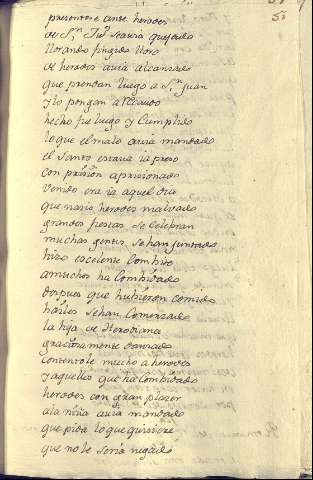 50
presentose ante herodes
de Sⁿ Juº se avia quejado
llorando fingido lloro
de herodes avia alcansado
que prendan luego a Sⁿ Juan
y lo pongan a recaudo
hecho fue luego y cumplido
lo que el malo avia mandado
el Santo estava ia preso
con prision aprisionado
venido era ia aquel dia
que nacio herodes malvado
grandes fiestas se celebran
muchas gentes se han juntado
hizo escelente combite
a muchos ha combidado
despues que hubieron comido
bailes se han comensado
la hija de Herodiana
graciosamente danzado
contentole mucho a herodes
y aquellos que ha combidado
herodes con gran plazer
a la niña avia mandado
que pida lo que quisiere
que no le seria negado